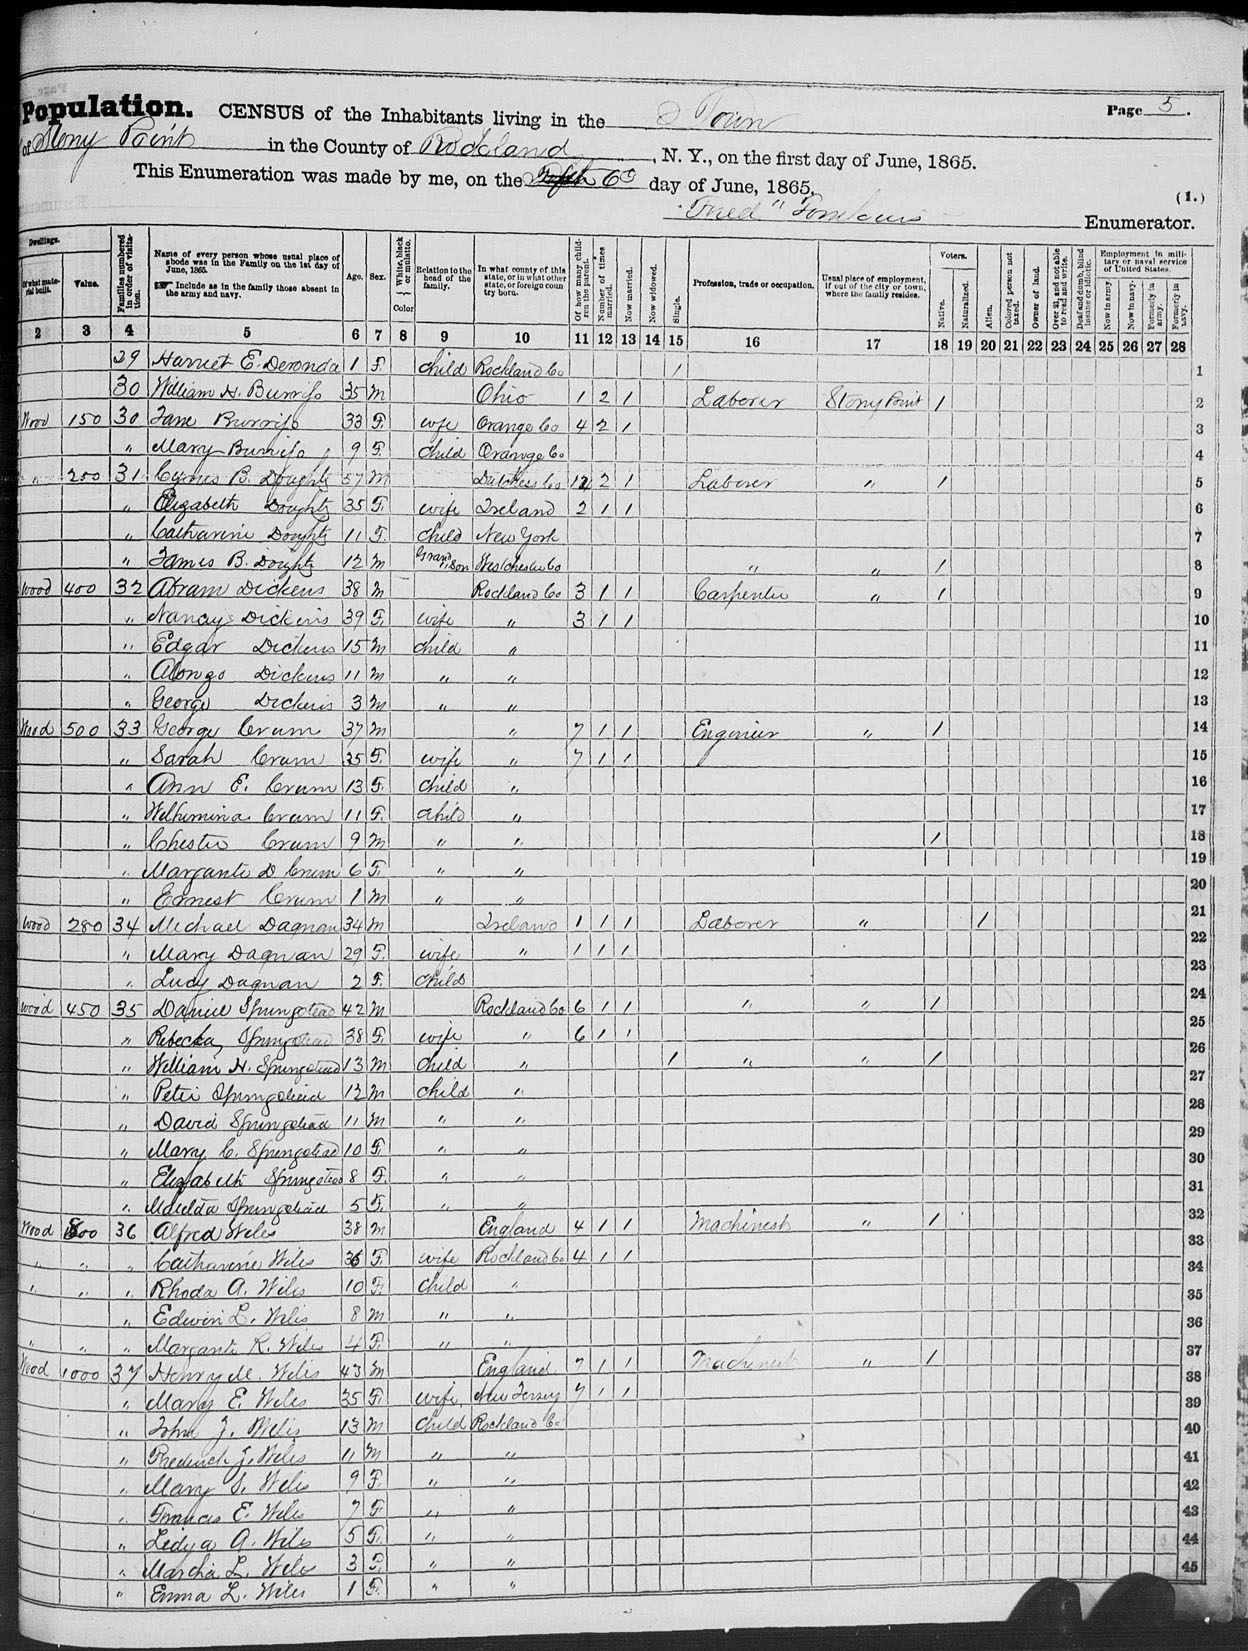 Population. CENSUS of the Inhabitants living in the Town Page 5.
of Stony Point in the County of Rockland, N. Y., on the first day of June, 1865.
This Enumeration was made by me, on the 6 day of June, 1865.
(1.)
Fred Tomkins Enumerator.
Dwellings.
Of what material built. Value. Families numbered in order of visitation. Name of every person whose usual place of abode was in the Family on the 1st day of June, 1865. Include as in the family those absent in the army and navy. Age. Sex. White, black or mulatto. Color Relation to the head of the family. In what county of this state, or in what other state, or foreign country born. Of how many children the parent. Number of times married. Now married. Now widowed. Single. Profession, trade or occupation. Usual place of employment, if out of the city or town, where the family resides. Voters. Native. Naturalized. Alien. Colored person not taxed. Owner of land. Over 21, and not able to read and write. Deaf and dumb, blind insane or idiotic. Employment in military or naval service of United States. Now in army. Now in navy. Formerly in army. Formerly in navy.
2 3 4 5 6 7 8 9 10 11 12 13 14 15 16 17 18 19 20 21 22 23 24 25 26 27 28
29 Harriet E. Deronda 1 F. child Rockland Co 1 1
30 William H. Burrifs 35 M Ohio 1 2 1 Laborer Stony Point 1 2
Wood 150 30 Jane Burrifs 33 F. wife Orange Co 4 2 1 3
" Mary Burrifs 9 F. child Orange Co 4
" 200 31 Cyrus B. Doughty 57 M Dutchess Co 2 1 Laborer " 1 5
" Elizabeth Doughty 35 F. wife Ireland 2 1 1 6
" Catharine Doughty 11 F. child New York 7
" James B. Doughty 12 M Grand Son Westchester Co " " 1 8
Wood 400 32 Abram Dickens 38 M Rockland Co 3 1 1 Carpenter " 1 9
" Nancy Dickens 39 F. wife " 3 1 1 10
" Edgar Dickens 15 M child " 11
" Alonzo Dickens 11 M " " 12
" George Dickens 3 M " " 13
Wood 500 33 George Crum 37 M " 7 1 1 Engineer " 1 14
" Sarah Crum 35 F. wife " 7 1 1 15
" Ann E. Crum 13 F. child " 16
" Wilhimina Crum 11 F. child " 17
" Chester Crum 9 M " " 1 18
" Margarite D Crum 6 F. " " 19
" Ernest Crum 1 M " " 20
Wood 280 34 Michael Dagnan 34 M Ireland 1 1 1 Laborer " 1 21
" Mary Dagnan 29 F. wife " 1 1 1 22
" Lucy Dagnan 2 F. child 23
Wood 450 35 Daniel Springstead 42 M Rockland Co 6 1 1 " " 1 24
" Rebecka Springstead 38 F. wife " 6 1 1 25
" William H. Springstead 13 M child " 1 " " 1 26
" Peter Springstead 12 M child " 27
" David Springstead 11 M " " 28
" Mary C. Springstead 10 F. " " 29
" Elizabeth Springstead 8 F. " " 30
" Matilda Springstead 5 F. " " 31
Wood 800 36 Alfred Wiles 38 M England 4 1 1 Machinest " 1 32
" " " Catharine Wiles 36 F. wife Rockland Co 4 1 1 33
" " " Rhoda A. Wiles 10 F. child " 34
" Edwin L. Wiles 8 M " " 35
" " " Margarite R. Wiles 4 F. " " 36
Wood 1000 37 Henry M. Wiles 43 M England 7 1 1 Machinest " 1 37
" Mary E. Wiles 35 F. wife New Jersey 7 1 1 38
" John J. Wiles 13 M child Rockland Co 39
" Frederick J. Wiles 11 M " " 40
" Mary S. Wiles 9 F. " " 41
" Francis E. Wiles 7 F. " " 42
" Lidya A. Wiles 5 F. " " 43
" Marcha L. Wiles 3 F. " " 44
" Emma L. Wiles 1 F. " " 45